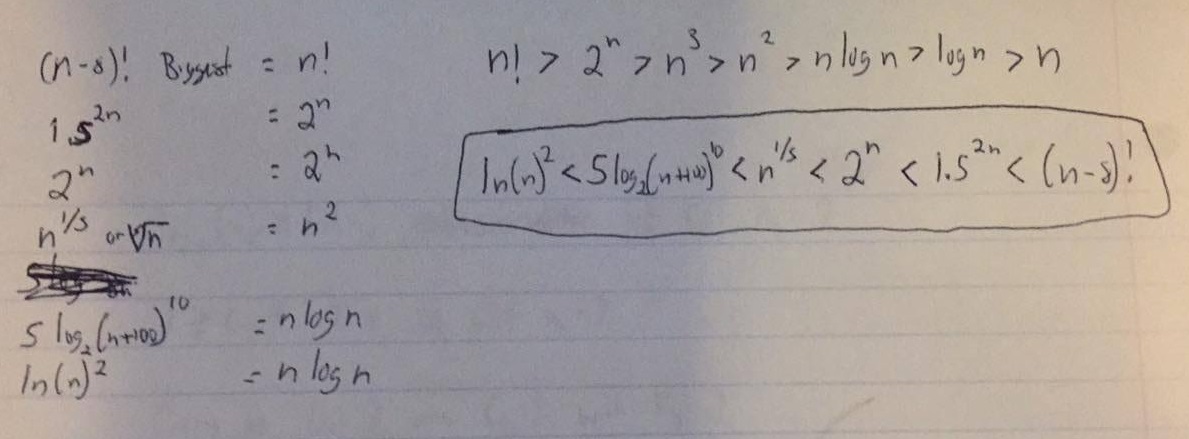 (n-8)! Biggest = n!
1.5^2n = 2^n
2^n = 2^n
n^1/5 or ⁵√n = n^2
5 log₂(n+100)^10 = n log n
ln(n)^2 = n log n
n! > 2^n > n^3 > n^2 > n log n > log n > n
ln(n)^2 < 5 log₂(n+100)^10 < n^1/5 < 2^n < 1.5^2n < (n-8)!